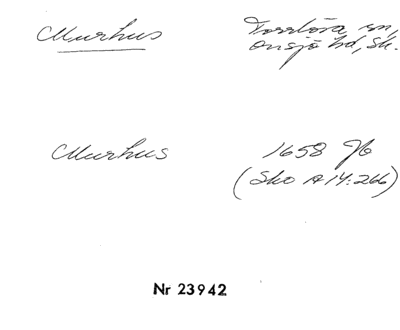 Murhus
Torrlösa sn,
Onsjö hd, Sk.
Murhus
1658 Jb
(Sko A 14:266)
Nr 23942